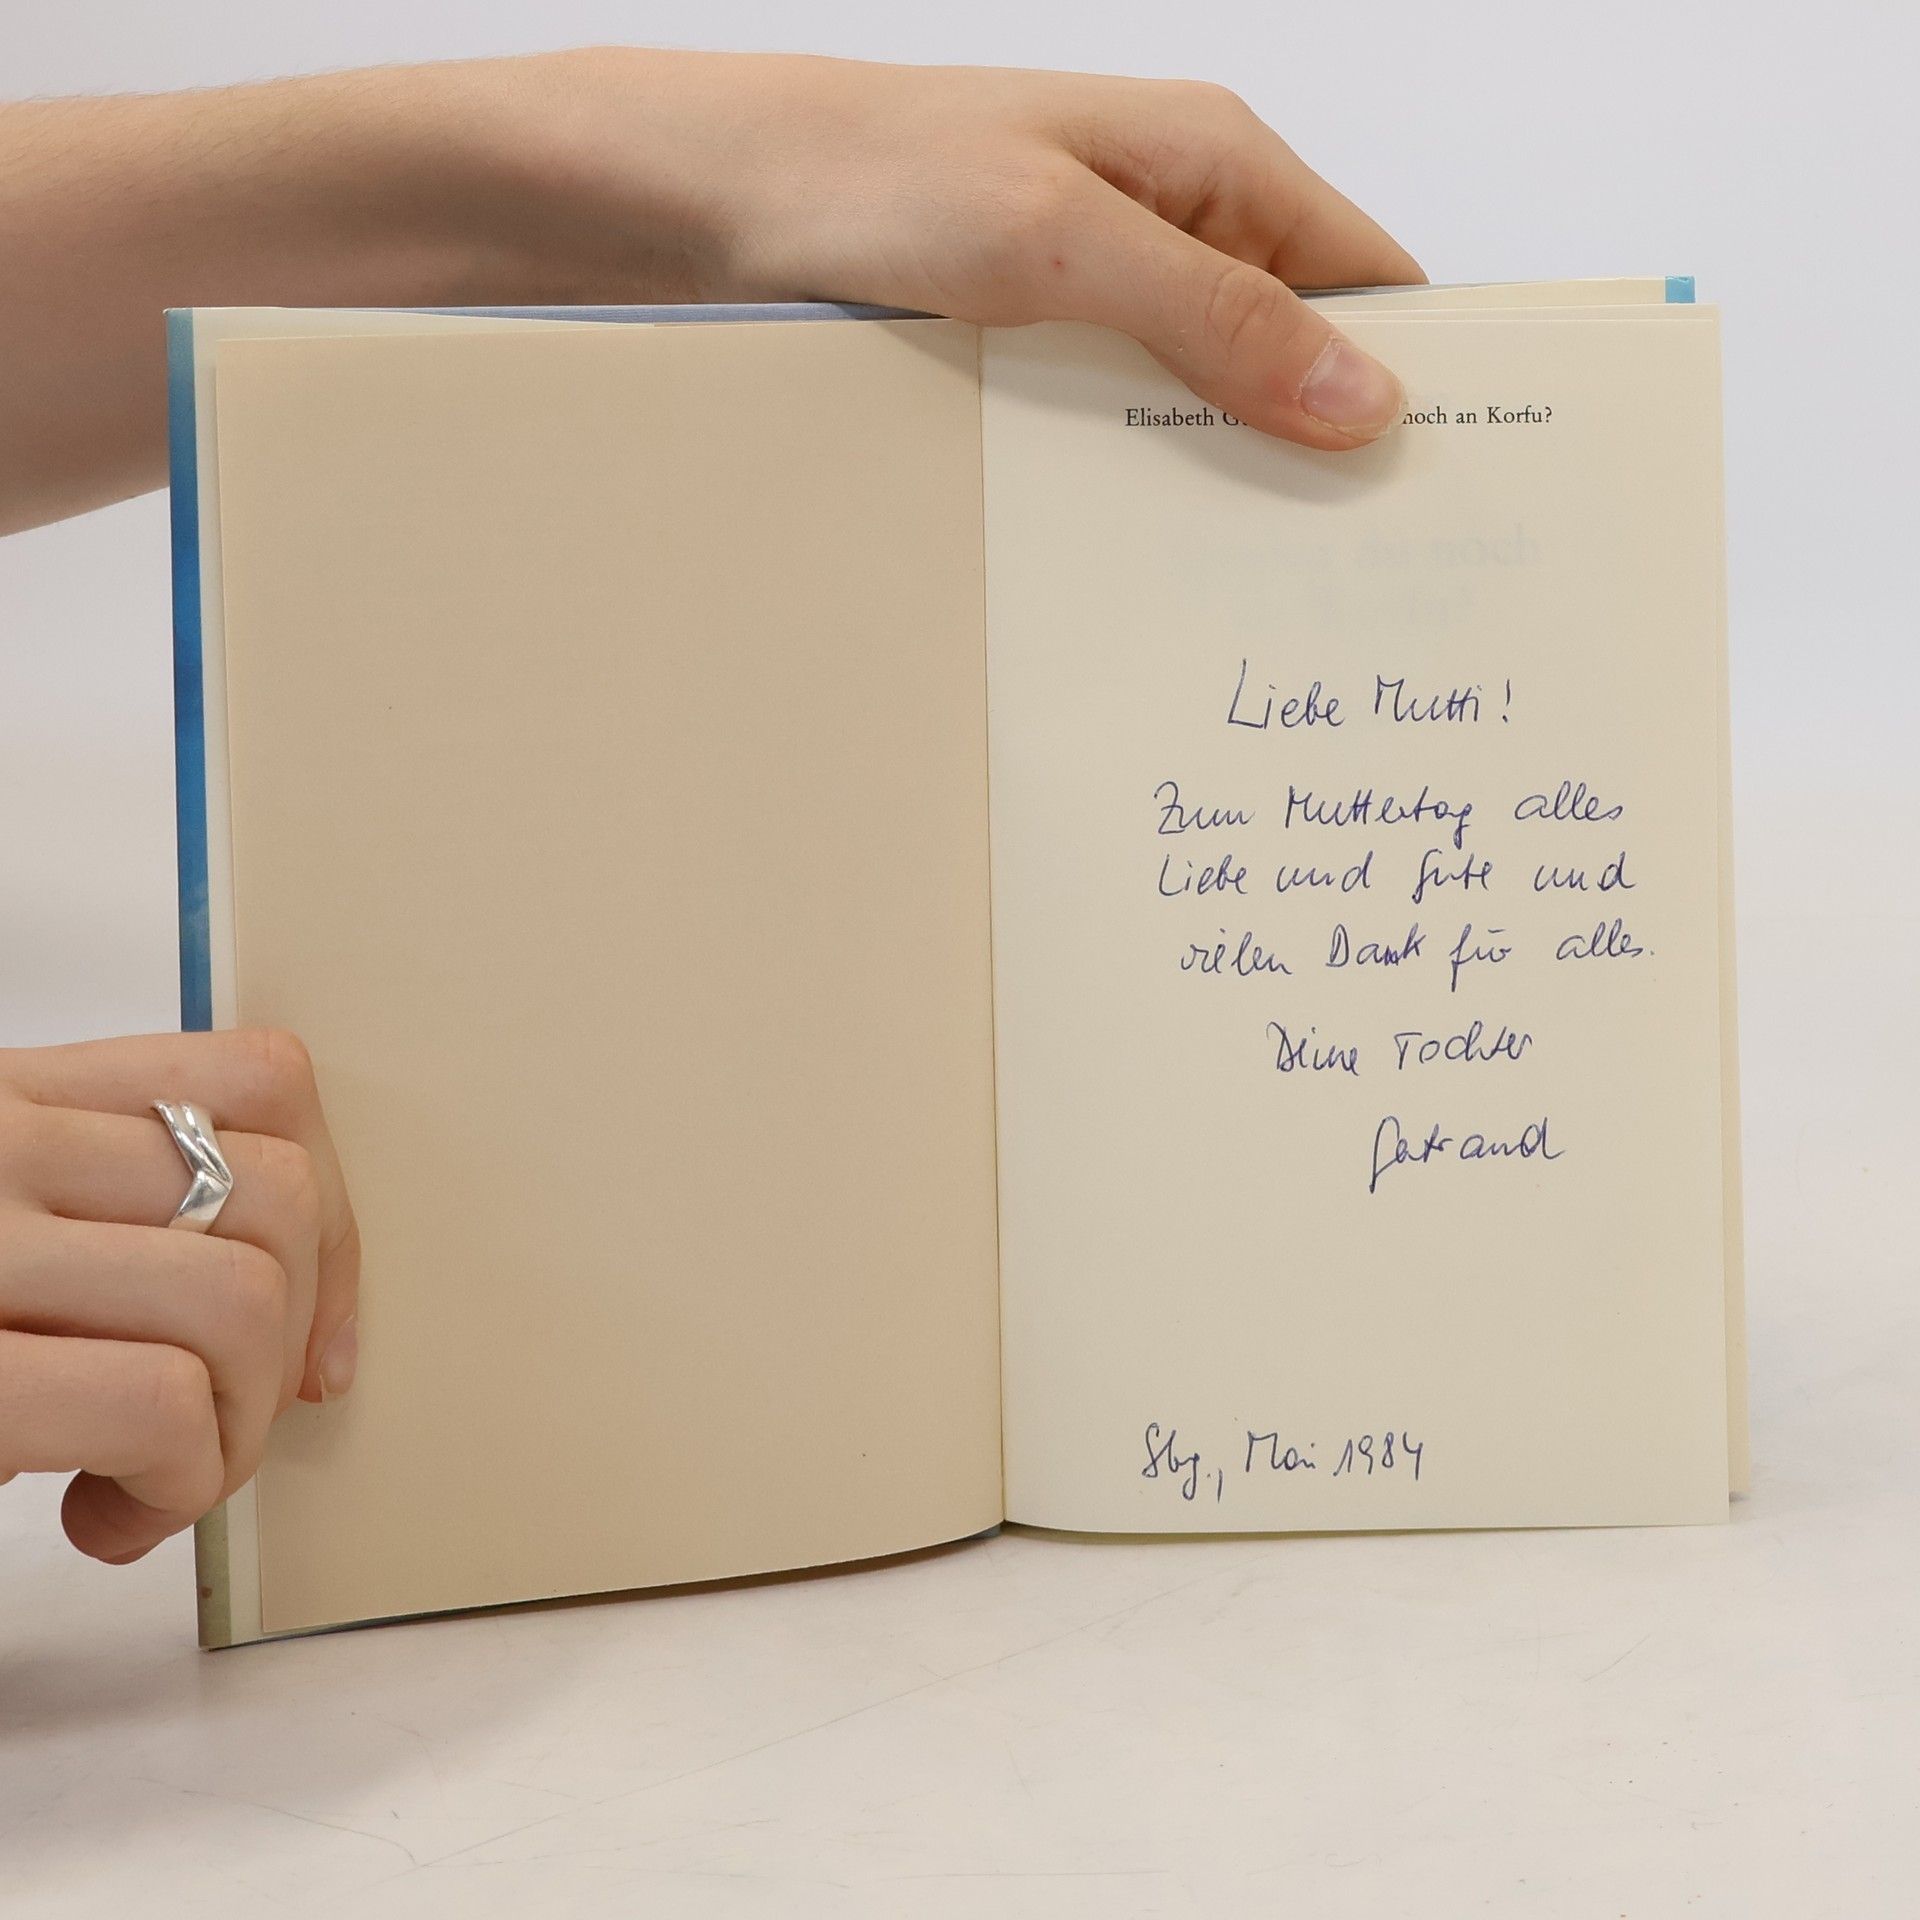 Elisabeth noch an Korfu?
Liebe Mutti!
Zum Muttertag alles
Liebe und Gute und
vielen Dank für alles.
Deine Tochter
Gertraud
Sbg., Mai 1984